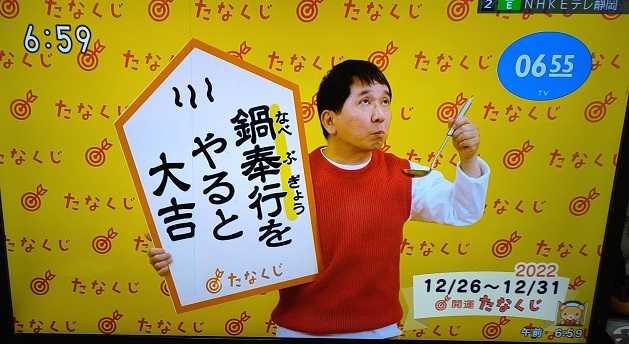 6:59
2 E NHKEテレ静岡
0655
TV
たなくじ
鍋奉行を
なべぶぎょう
やると
大吉
たなくじ
2022
12/26～12/31
開運たなくじ
午前 6:59